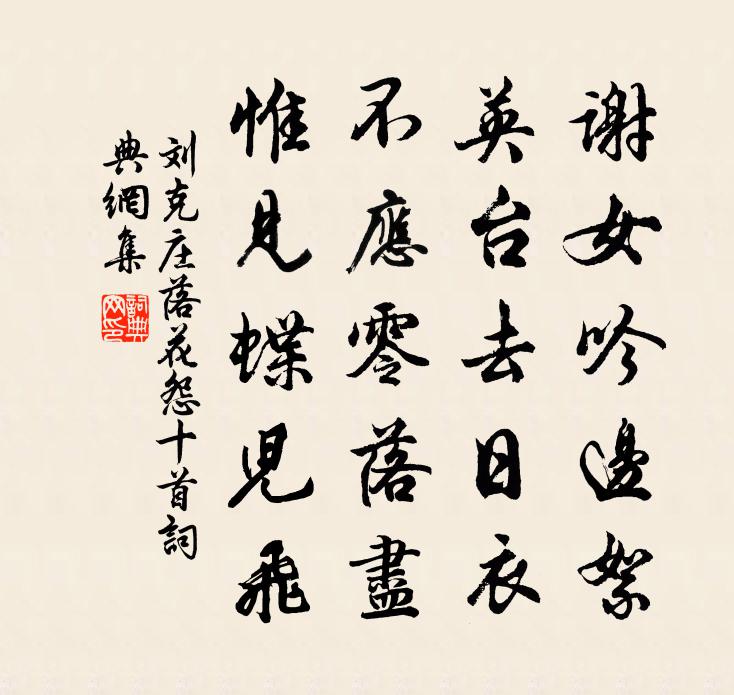 謝女吟邊絮
英台去日衣
不應零落盡
惟見蝶児飛
刘克庄落花怨十首詞
典網集
詞典網印